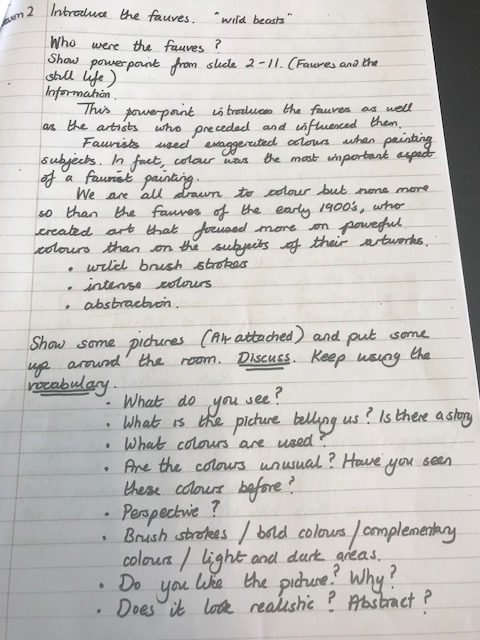 esson 2 Introduce the fauves. "wild beasts"
Who were the fauves?
Show powerpoint from slide 2-11. (Fauves and the
still life)
Information.
This powerpoint introduces the fauves as well
as the artists who preceded and influenced them.
Fauvists used exaggerated colours when painting
subjects. In fact, colour was the most important aspect
of a fauvist painting.
We are all drawn to colour but none more
so than the fauves of the early 1900's, who
created art that focused more on powerful
colours than on the subjects of their artworks.
• wild brush strokes
• intense colours
• abstraction.
Show some pictures (A4 attached) and put some
up around the room. Discuss. Keep using the
vocabulary.
• What do you see?
• What is the picture telling us? Is there a story
• What colours are used?
• Are the colours unusual? Have you seen
these colours before?
• Perspective?
• Brush strokes / bold colours / complementary
colours / light and dark areas.
• Do you like the picture? Why?
• Does it look realistic? Abstract?